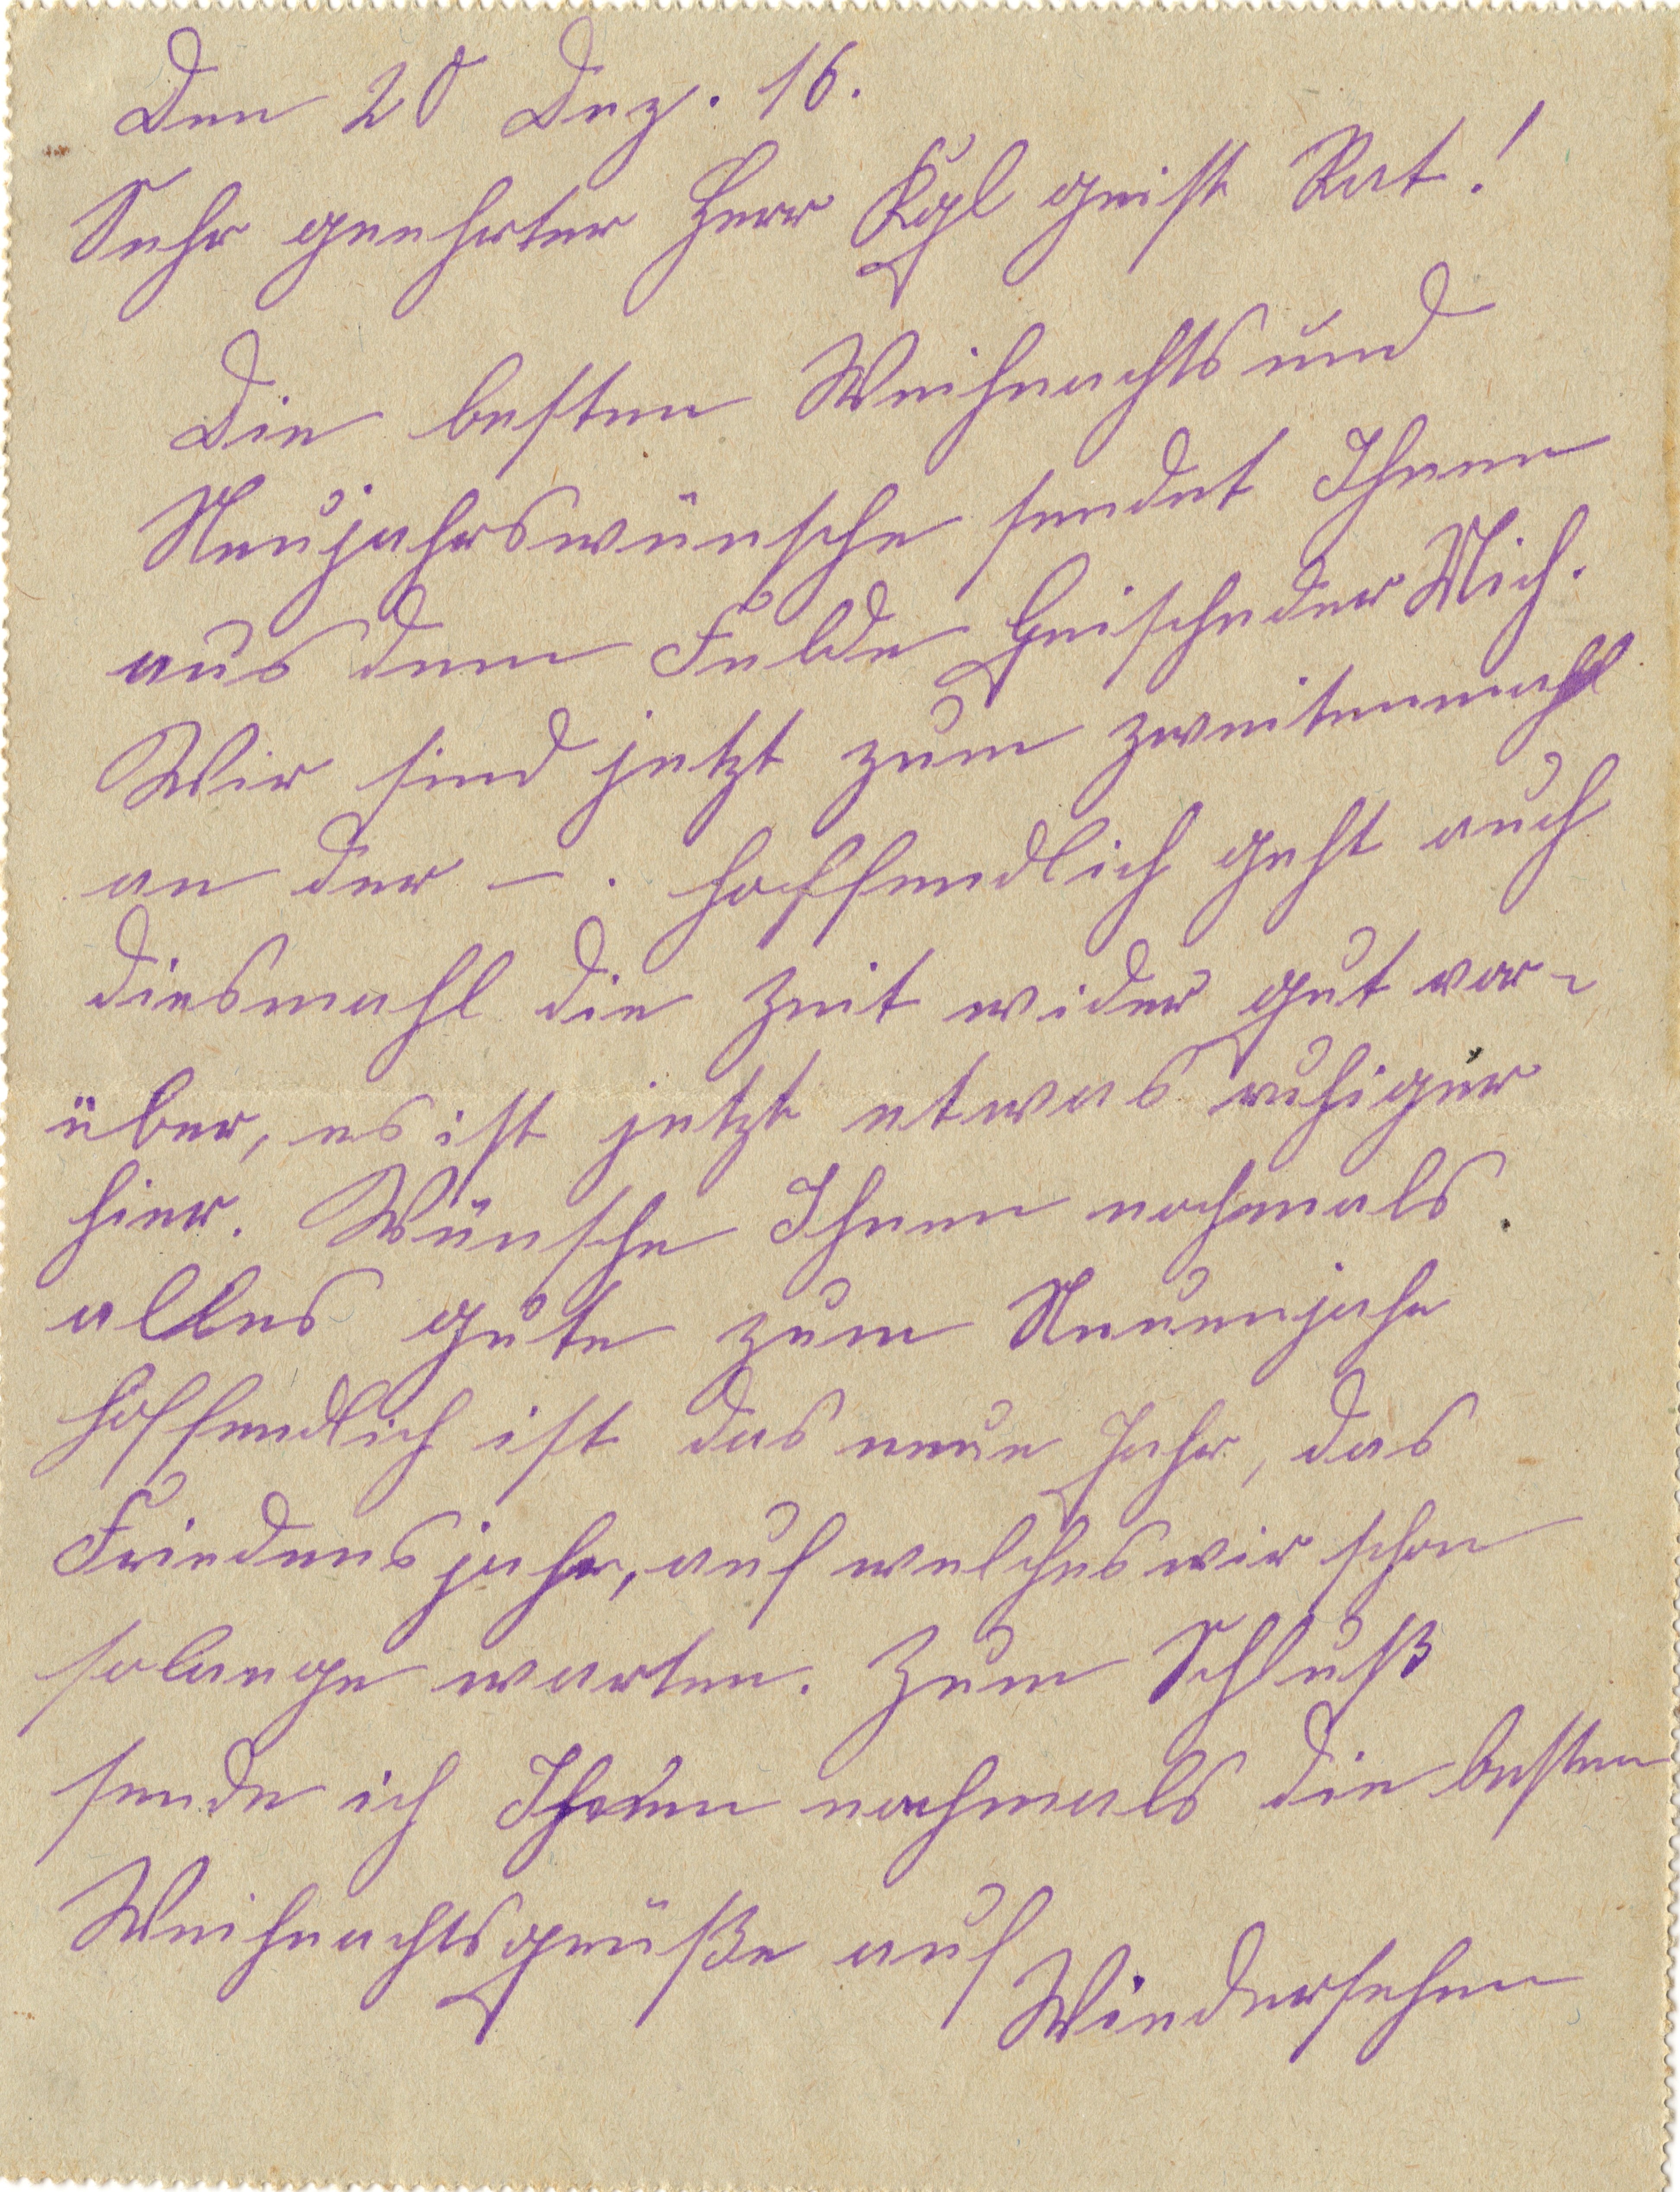 Den 20 Dez. 16.
Sehr geehrter Herr Kgl geist Rat!
Die besten Weihnachts und
Neujahrswünsche sendet Ihnen
aus dem Felde Mich.
Wir sind jetzt zum zweitenmahl
an der —. hoffendlich geht auch
diesmahl die Zeit wider gut vor-
über, es ist jetzt etwas ruhiger
hier. Wünsche Ihnen nochmals
alles gute zum Neuenjahr
hoffendlich ist das neue Jahr, das
Friedensjahr, auf welches wir schon
solange warten. Zum Schluß
sende ich Ihnen nochmals die besten
Weihnachtsgrüße auf
Wiedersehen